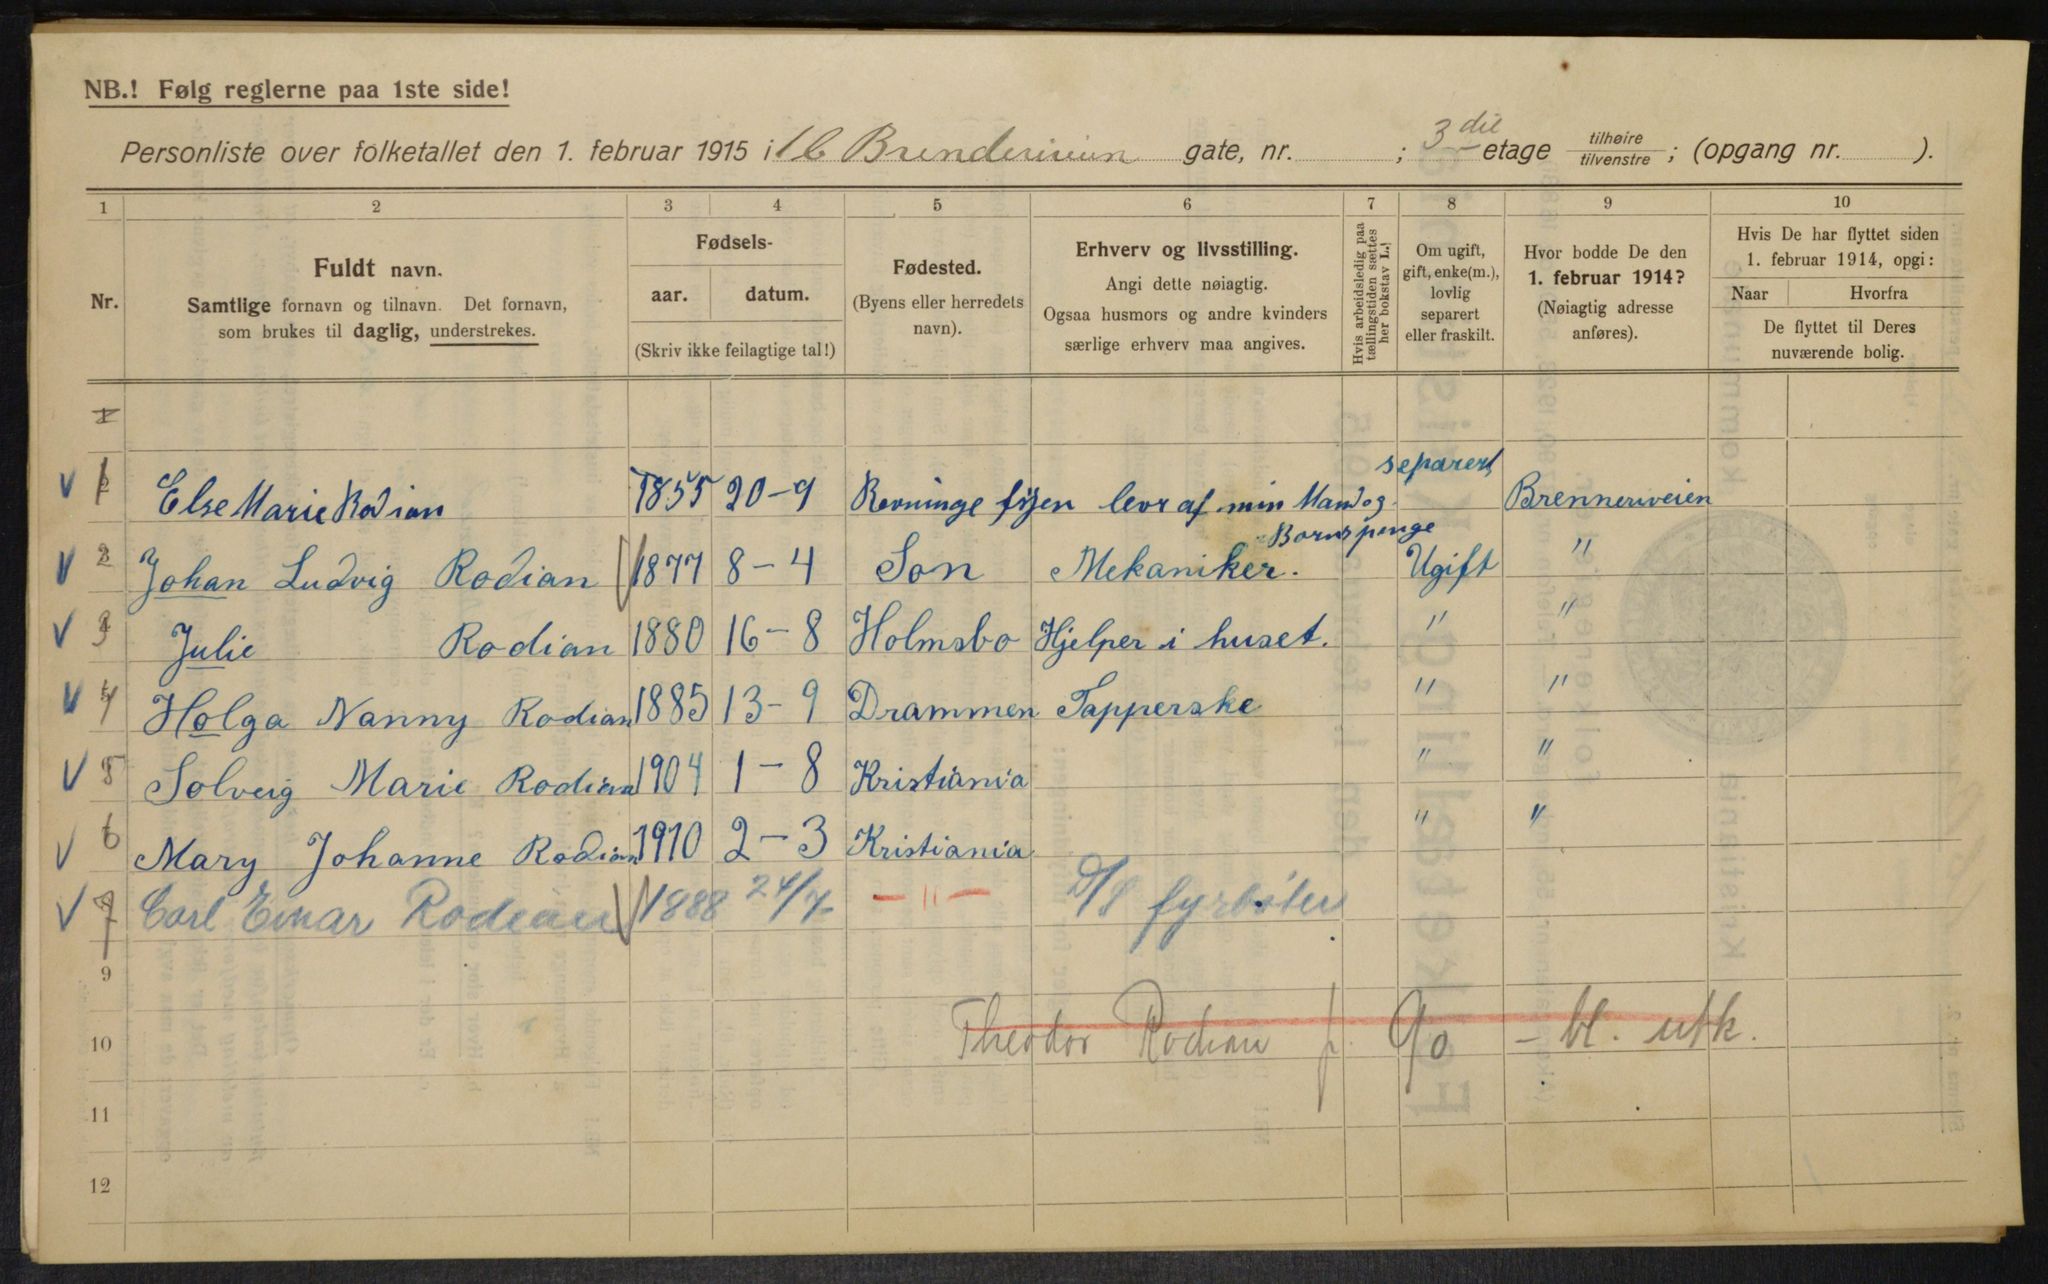 NB.! Følg reglerne paa 1ste side!
Personliste over folketallet den 1. februar 1915 i 16 gate, nr. ; 3 die etage tilhøire tilvenstre ; (opgang nr. ).
1 2 3 4 5 6 7 8 9 10
Nr.
Fuldt navn.
Samtlige fornavn og tilnavn. Det fornavn,
som brukes til daglig, understrekes.
Fødsels-
aar. datum.
(Skriv ikke feilagtige tal!)
Fødested.
(Byens eller herredets
navn).
Erhverv og livsstilling.
Angi dette nøiagtig.
Ogsaa husmors og andre kvinders
særlige erhverv maa angives.
Hvis arbeidsledig paa
tællingstiden sættes
her bokstav L.!
Om ugift,
gift, enke(m.),
lovlig
separert
eller fraskilt.
Hvor bodde De den
1. februar 1914?
(Nøiagtig adresse
anføres).
Hvis De har flyttet siden
1. februar 1914, opgi:
Naar Hvorfra
De flyttet til Deres
nuværende bolig.
1
1 Else Marie Rodian 1855 20-9 Revninge fyen levr af min Mand og Bornspenge separert Brenneriveien
2 Johan Ludvig Rodian 1877 8-4 Son Mekaniker. Ugift "
3 Julie Rodian 1880 16-8 Holmsbo Hjelper i huset. " "
4 Holga Nanny Rodian 1885 13-9 Drammen Tapperske " "
5 Solveig Marie Rodian 1904 1-8 Kristiania " "
6 Mary Johanne Rodian 1910 2-3 Kristiania " "
7 Carl Einar Rodian 1888 24/7 - " - D/S fyrbøter
9
Theodor Rodian f. 90 - bl. utk.
10
11
12